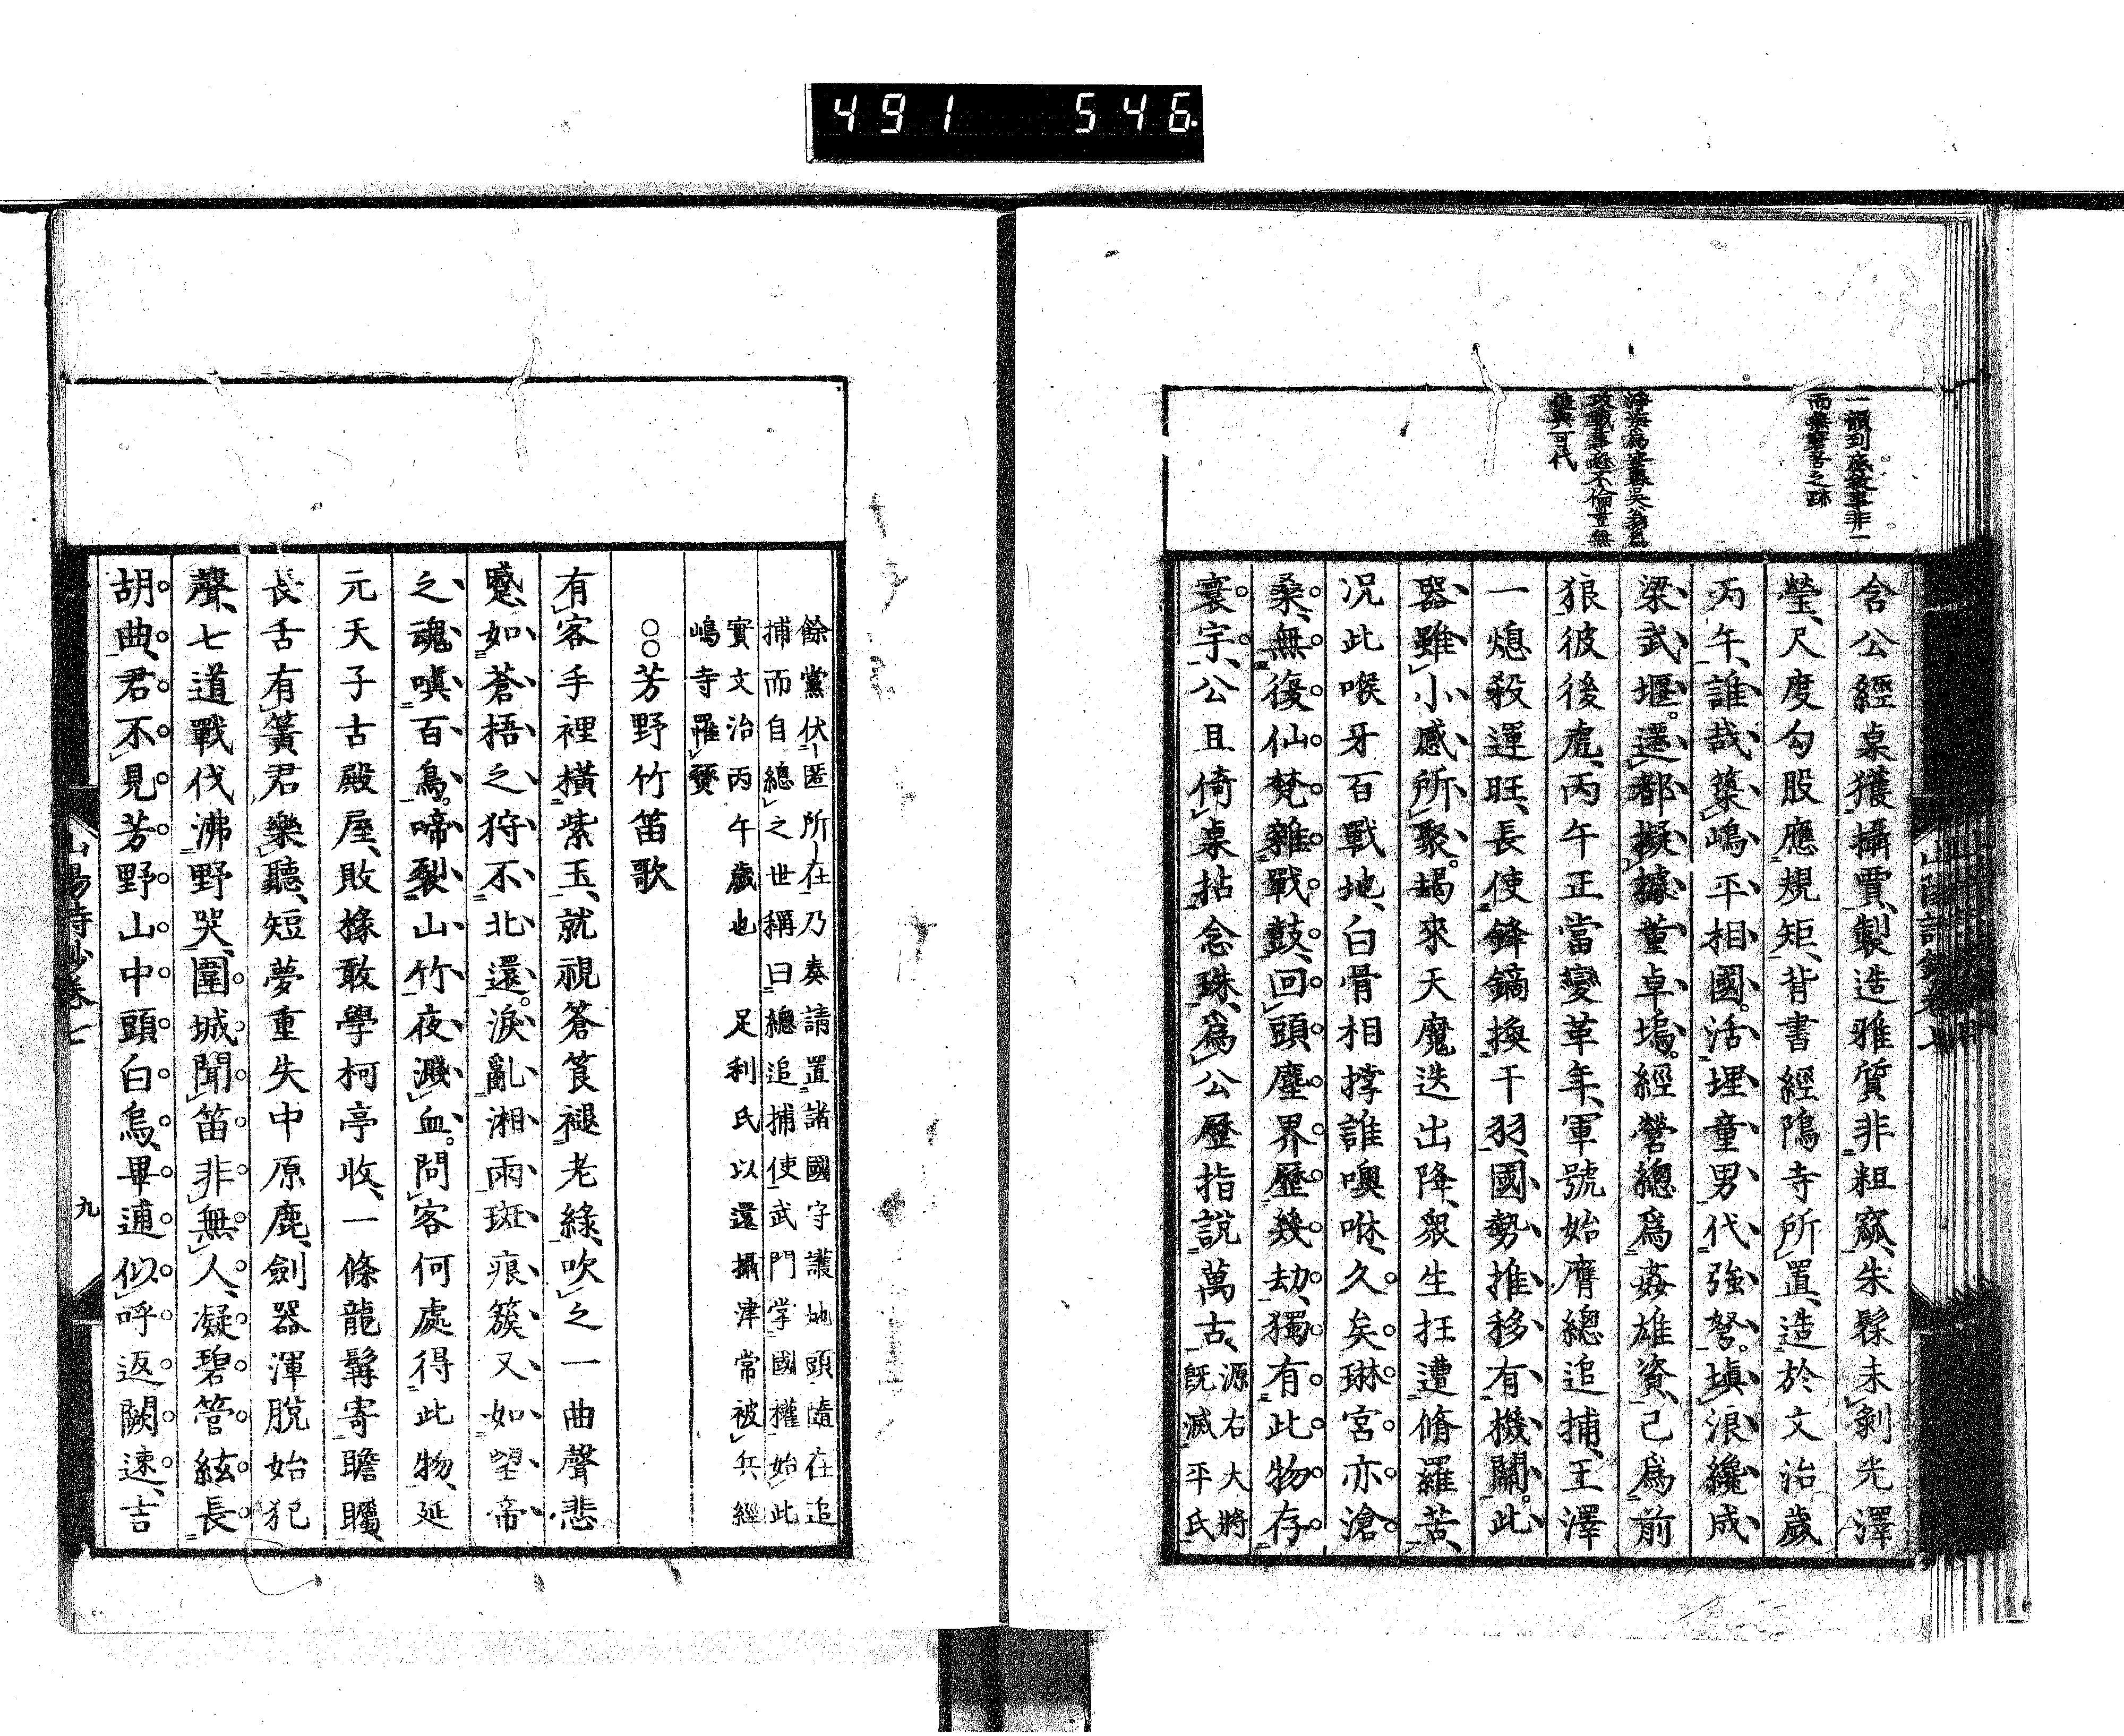 491 546
一韻到底敍事非一
而無窘苦之跡
含公經桌獲攝賈製造雅質非粗窳朱髹未剝光澤
瑩尺度勾股應規矩背書經隝寺所置造於文治歲
丙午誰哉築嶋平相國活埋童男代強弩塡浪纔成
梁武堰還都擬據董卓塢經營總爲姦雄資已爲前
狼彼後虎丙午正當變革年軍號始膺總追捕王澤
一熄殺運旺長使鋒鏑換干羽國勢推移有機關此
器雖小感所聚朅來天魔迭出降衆生抂遭脩羅苦
況此喉牙百戰地白骨相撑誰噢咻久矣琳宮亦滄
桑無復仙梵雜戰鼓回頭塵界歷幾劫獨有此物存
寰宇公且倚桌拈念珠爲公歷指說萬古源右大將既滅平氏
餘黨伏匿所在乃奏請置諸國守護地頭隨在追
捕而自總之世稱曰總追捕使武門掌國權始此
實文治丙午歲也 足利氏以還攝津常被兵經
嶋寺罹燹
○○芳野竹笛歌
有客手裡橫紫玉就視蒼筤褪老綠吹之一曲聲悲
蹙如蒼梧之狩不北還淚亂湘雨斑痕簇又如望帝
之魂嗔百鳥啼裂山竹夜濺血問客何處得此物延
元天子古殿屋敗椽敢學柯亭收一條龍髯寄瞻矚
長舌有簧君樂聽短夢重失中原鹿劍器渾脫始犯
聲七道戰伐沸野哭圍城聞笛非無人凝碧管絃長
胡曲君不見芳野山中頭白烏畢逋似呼返闕速吉
山陽詩鈔卷七
九